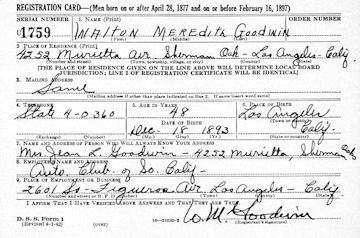 REGISTRATION CARD—(Men born on or after April 28, 1877 and on or before February 16, 1897)
SERIAL NUMBER 1. NAME (Print)
1759 WALTON MEREDITH GOODWIN
(First) (Middle) (Last)
2. PLACE OF RESIDENCE (Print)
4252 Murietta Ave. Sherman Oak - Los Angeles - Calif.
(Number and street) (Town, township, village, or city) (County) (State)
[THE PLACE OF RESIDENCE GIVEN ON THE LINE ABOVE WILL DETERMINE LOCAL BOARD
JURISDICTION; LINE 2 OF REGISTRATION CERTIFICATE WILL BE IDENTICAL]
3. MAILING ADDRESS
Same
[Mailing address if other than place indicated on line 2. If same insert word same]
4. TELEPHONE 5. AGE IN YEARS 6. PLACE OF BIRTH
State 4-0360 48 Los Angeles
DATE OF BIRTH
Dec. 18 1893 Calif.
(Exchange) (Number) (Mo.) (Day) (Yr.) (State or country)
7. NAME AND ADDRESS OF PERSON WHO WILL ALWAYS KNOW YOUR ADDRESS
Mrs. Jean L. Goodwin - 4252 Murietta, Sherman Oak
8. EMPLOYER'S NAME AND ADDRESS
Auto. Club - of So. Calif -
9. PLACE OF EMPLOYMENT OR BUSINESS
2601 So - Figueroa Ave Los Angeles - Calif
(Number and street or R. F. D. number) (Town) (County) (State)
I AFFIRM THAT I HAVE VERIFIED ABOVE ANSWERS AND THAT THEY ARE TRUE.
D. S. S. Form 1
(Revised 4-1-42) (over)
W. M. Goodwin